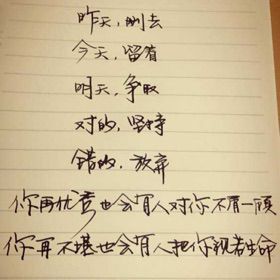 昨天，删去
今天，留着
明天，争取
对的，坚持
错的，放弃
你再优秀也会有人对你不屑一顾
你再不堪也会有人把你视若生命